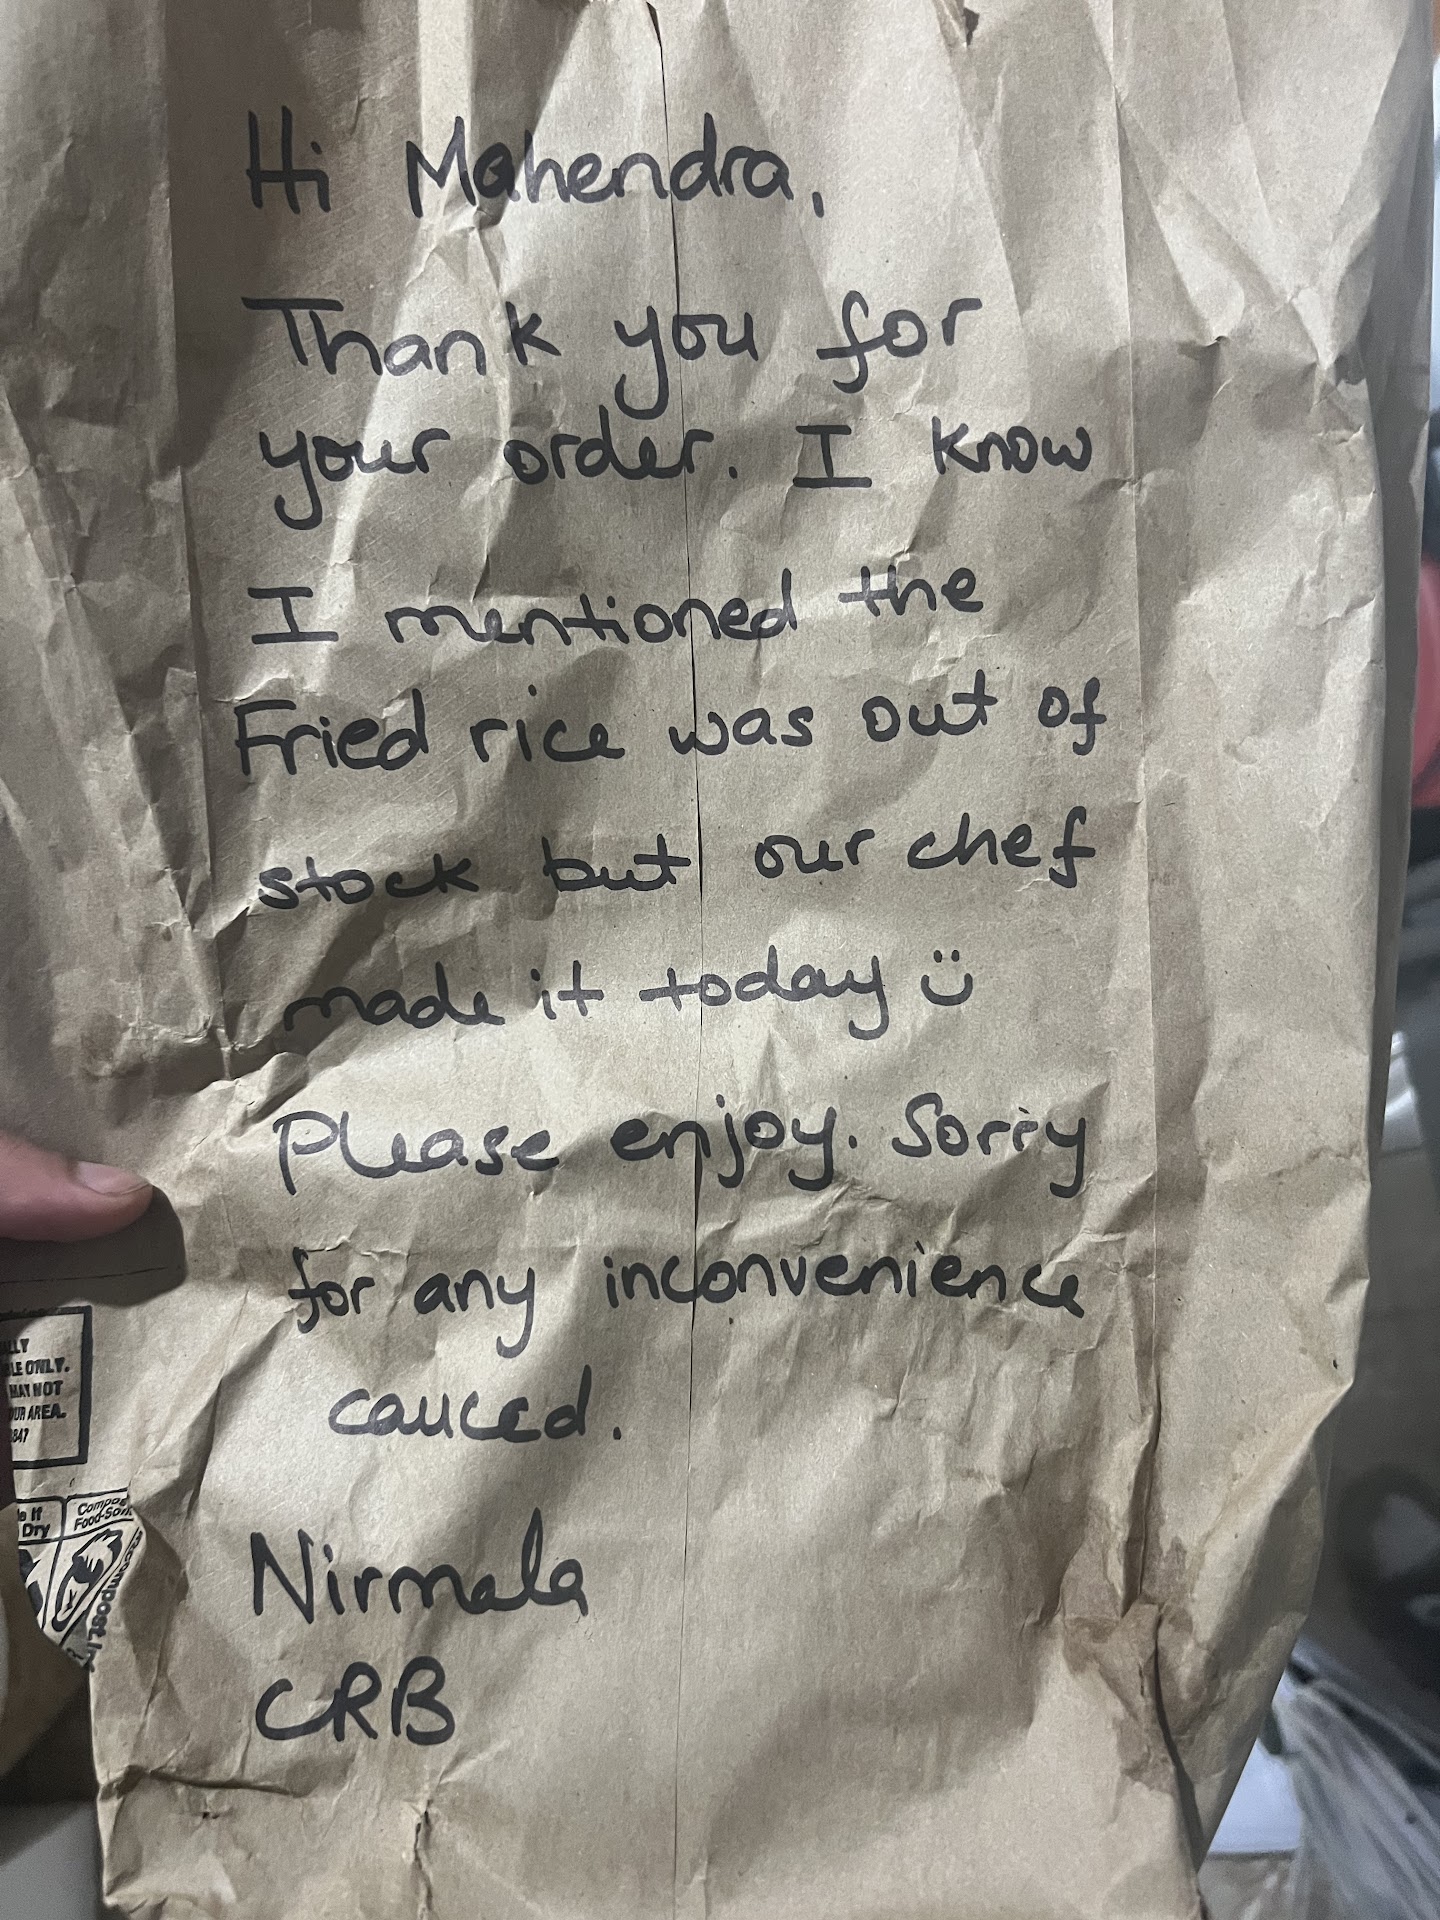 Hi Mahendra,
Thank you for
your order. I know
I mentioned the
Fried rice was out of
stock but our chef
made it today ☺
Please enjoy. Sorry
for any inconvenience
cauced.
Nirmala
CRB
LE ONLY.
MAY NOT
UR AREA.
847
If
Dry
Food-So